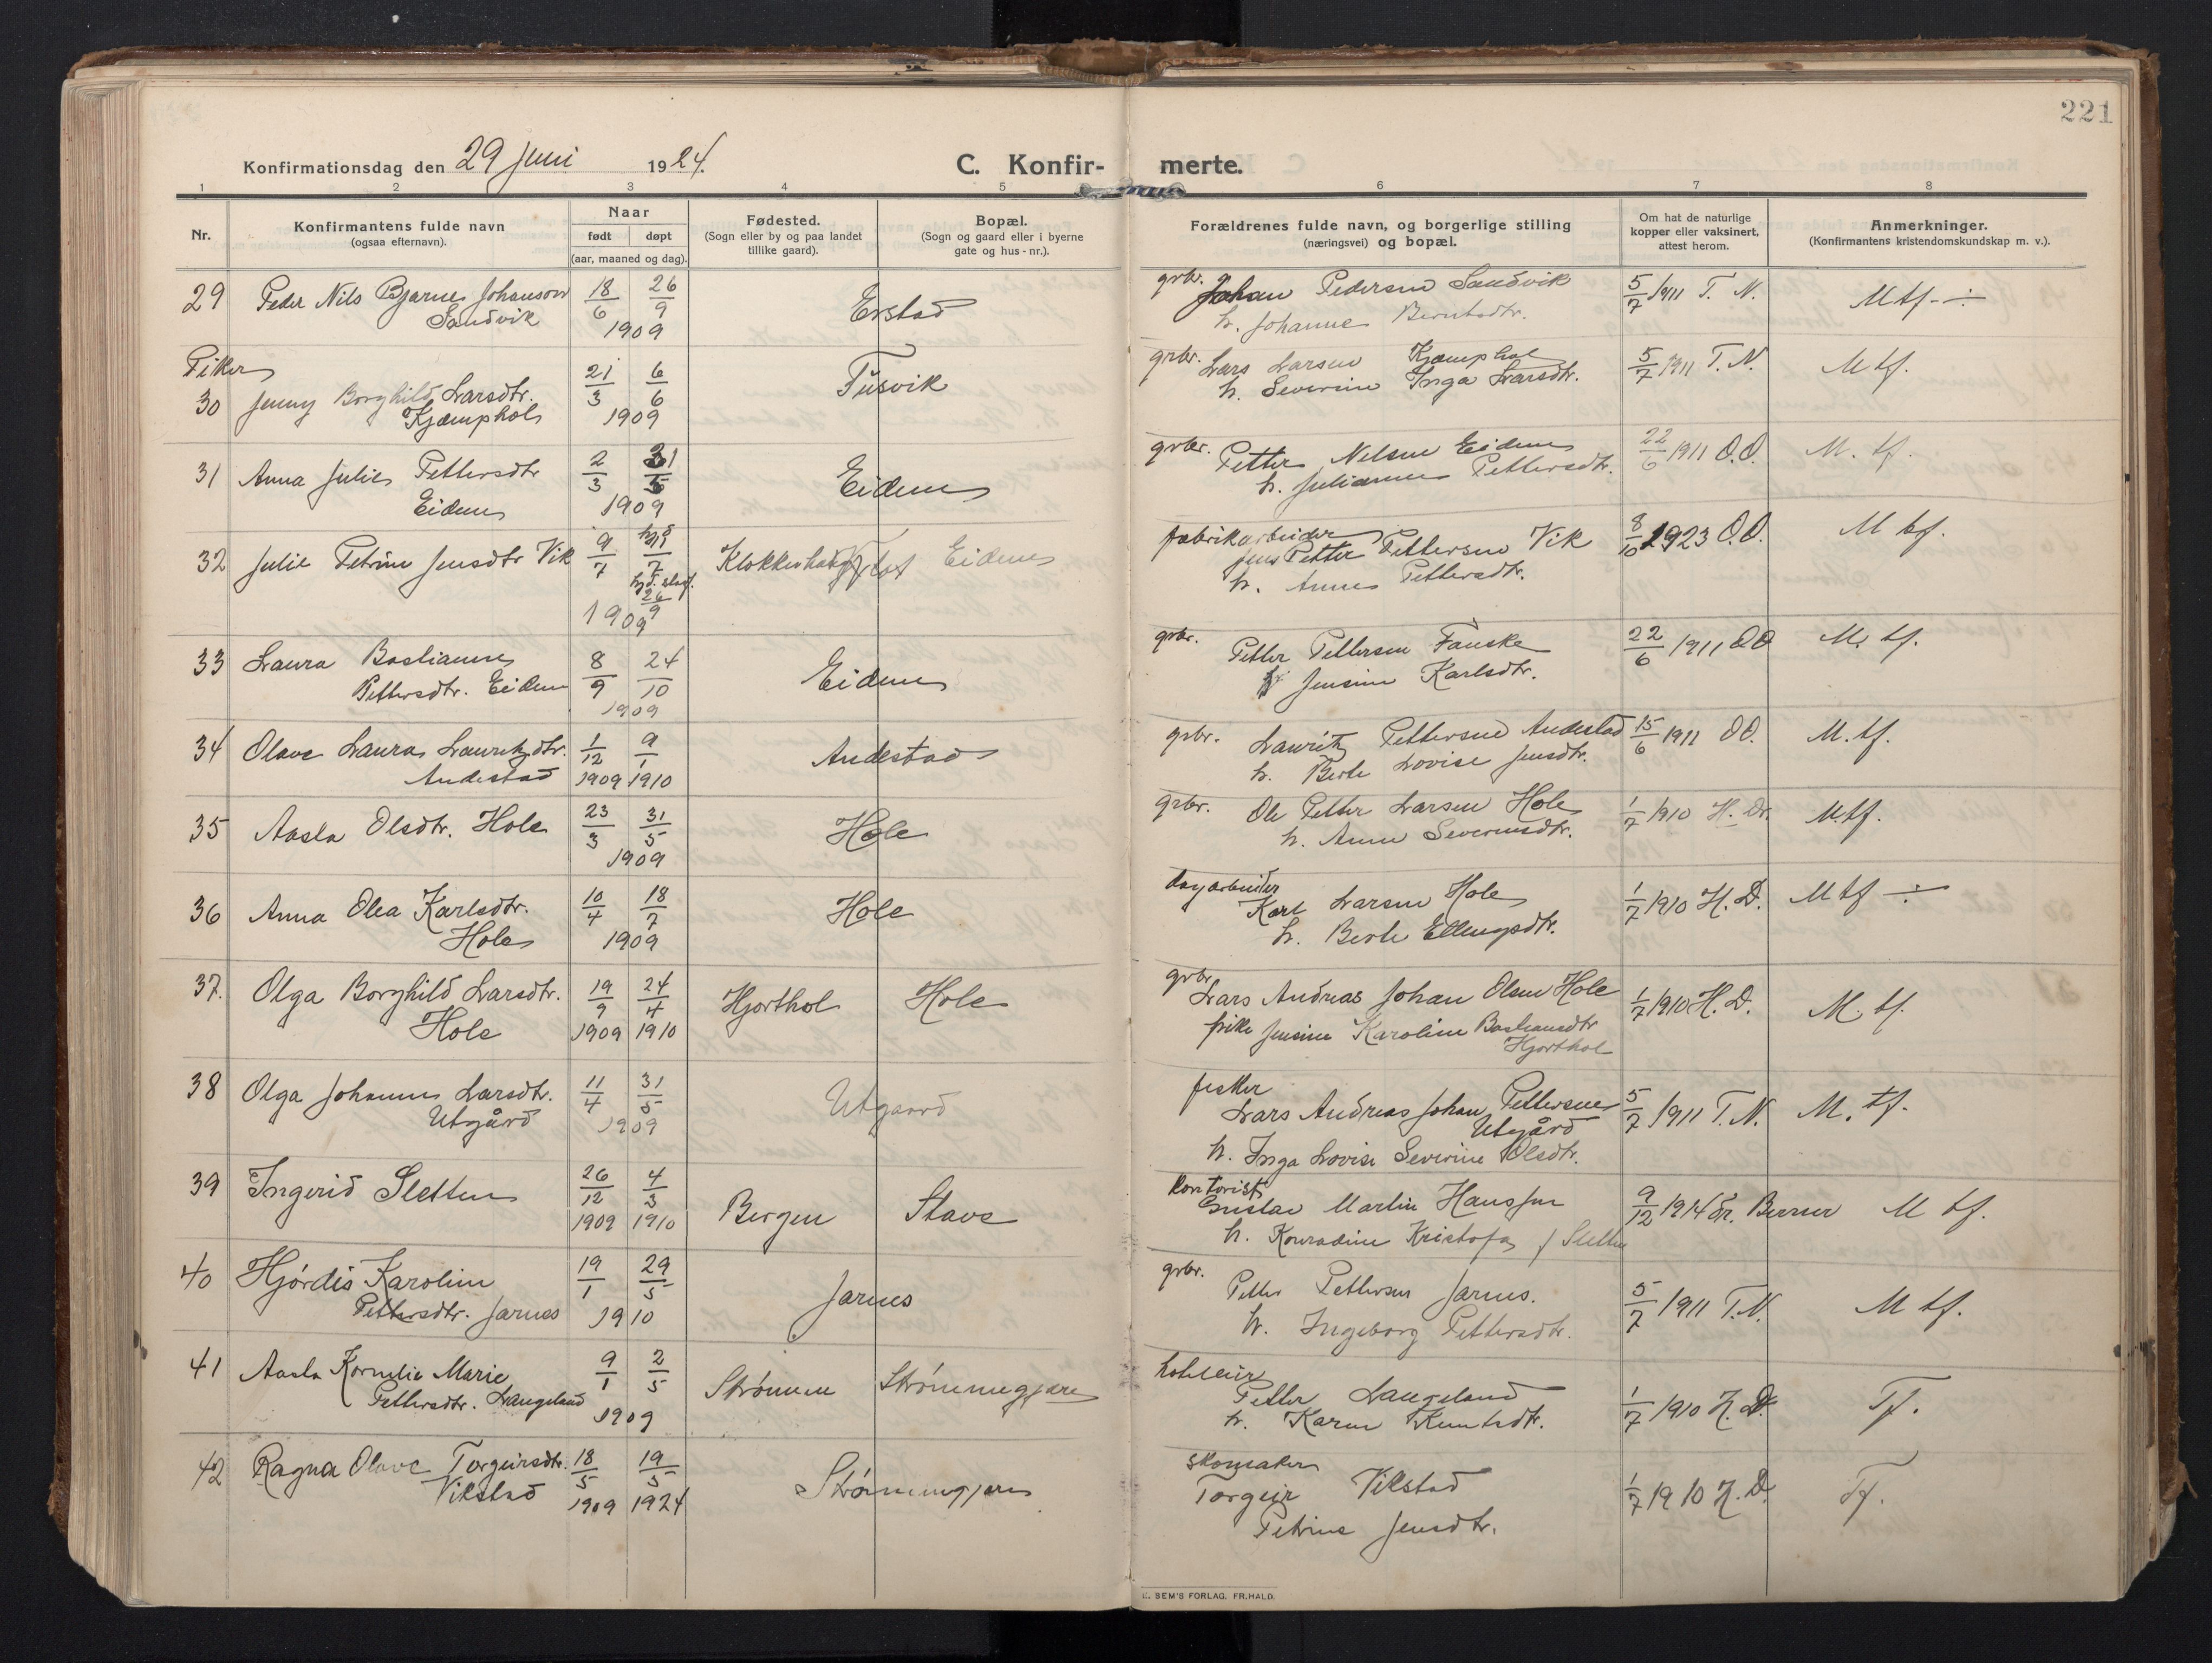 221
Konfirmationsdag den 29 juni 1924.
C. Konfir- merte.
1 2 3 4 5 6 7 8
Nr.
Konfirmantens fulde navn
(ogsaa efternavn).
Naar
født døpt
(aar, maaned og dag).
Fødested.
(Sogn eller by og paa landet
tillike gaard).
Bopæl.
(Sogn og gaard eller i byerne
gate og hus-nr.).
Forældrenes fulde navn, og borgerlige stilling
(næringsvei) og bopæl.
Om hat de naturlige
kopper eller vaksinert,
attest herom.
Anmerkninger.
(Konfirmantens kristendomskundskap m. v.).
29 Peder Nils Bjarne Johanson 18/6 26/9 Erstad grbr. Johan Pedersen Sandvik 5/7 1911 T. N. M tf. ÷
Sandvik 1909 h. Johanne Berntsdtr.
Piker
30 Jenny Borghild Larsdtr. 21/3 6/6 Tusvik grbr. Lars Larsen Kjemphol 5/7 1911 T. N. M tf.
Kjæmphol 1909 h. Severine Inga Larsdtr.
31 Anna Julie Pettersdtr 2/3 31/5 Eidem grbr. Petter Nelsen Eidem 22/6 1911 O.O. M. tf.
Eidem 1909 h. Julianne Pettersdtr.
32 Julie Petrine Jensdtr Vik 9/7 hjd 11/7 Klokkerhaug Eidem fabrikarbeider 8/10 1923 O.O. M tf.
hjd. stadf. 26/9 Jens Petter Pettersen Vik
1909 h. Anne Pettersdtr.
33 Laura Bastianne 8/9 24/10 Eidem grbr. Petter Pettersen Fauske 22/6 1911 O.O M. tf.
Pettersdtr. Eidem 1909 h Jensine Karlsdtr.
34 Olave Laura Lauritzdtr. 1/12 9/1 Andestad grbr. Lauritz Pettersen Andestad 15/6 1911 O.O. M. tf.
Andestad 1909 1910 h. Berte Lovise Jensdtr.
35 Aasla Olsdtr. Hole 23/3 31/5 Hole grbr. Ole Petter Larsen Hole 1/7 1910 H. Dr. M. tf.
1909 h. Anne Severinsdtr.
36 Anna Olea Karlsdtr. 10/4 18/7 Hole dagarbeider 1/7 1910 H. D. M tf ÷
Hole 1909 Karl Larsen Hole
h. Berte Ellingsdtr.
37. Olga Borghild Larsdtr. 19/9 24/4 Hjorthol Hole grbr. Lars Andreas Johan Olsen Hole 1/7 1910 H. D. M. tf.
Hole 1909 1910 pike Jensine Karoline Bastiansdtr
Hjorthol
38 Olga Johanne Larsdtr. 11/4 31/5 Utgaard fisker 5/7 1911 T. N. M. tf.
Utgård 1909 Lars Andreas Johan Pettersen
Utgård
h. Inga Lovise Severine Olsdtr.
39 Ingerid Sletten 26/12 4/3 Bergen Stave kontorist 9/12 1914 M tf.
1909 1910 Gustav Martin Hanssen
h. Konradine Kristofa f Sletten
40 Hjørdis Karoline 19/1 29/5 Jarnes grbr. Petter Pettersen Jarnes. 5/7 1911 T.N. M tf.
Pettersdtr. Jarnes 1910 h. Ingeborg Pettersdtr.
41 Aasla Kornelie Marie 9/1 2/5 Strømmen Strømmegjære Petter Langeland 1/7 1910 H. D. Tf.
Pettersdtr. Langeland 1909 h. Karen Knutsdtr.
42 Ragna Olave Torgeirsdtr. 18/5 19/5 Strømmegjære skomaker 1/7 1910 H. D. Tf.
Vikstad 1909 1924 Torgeir Vikstad
Petrine Jensdtr.
SEM'S FORLAG. FR.HALD.